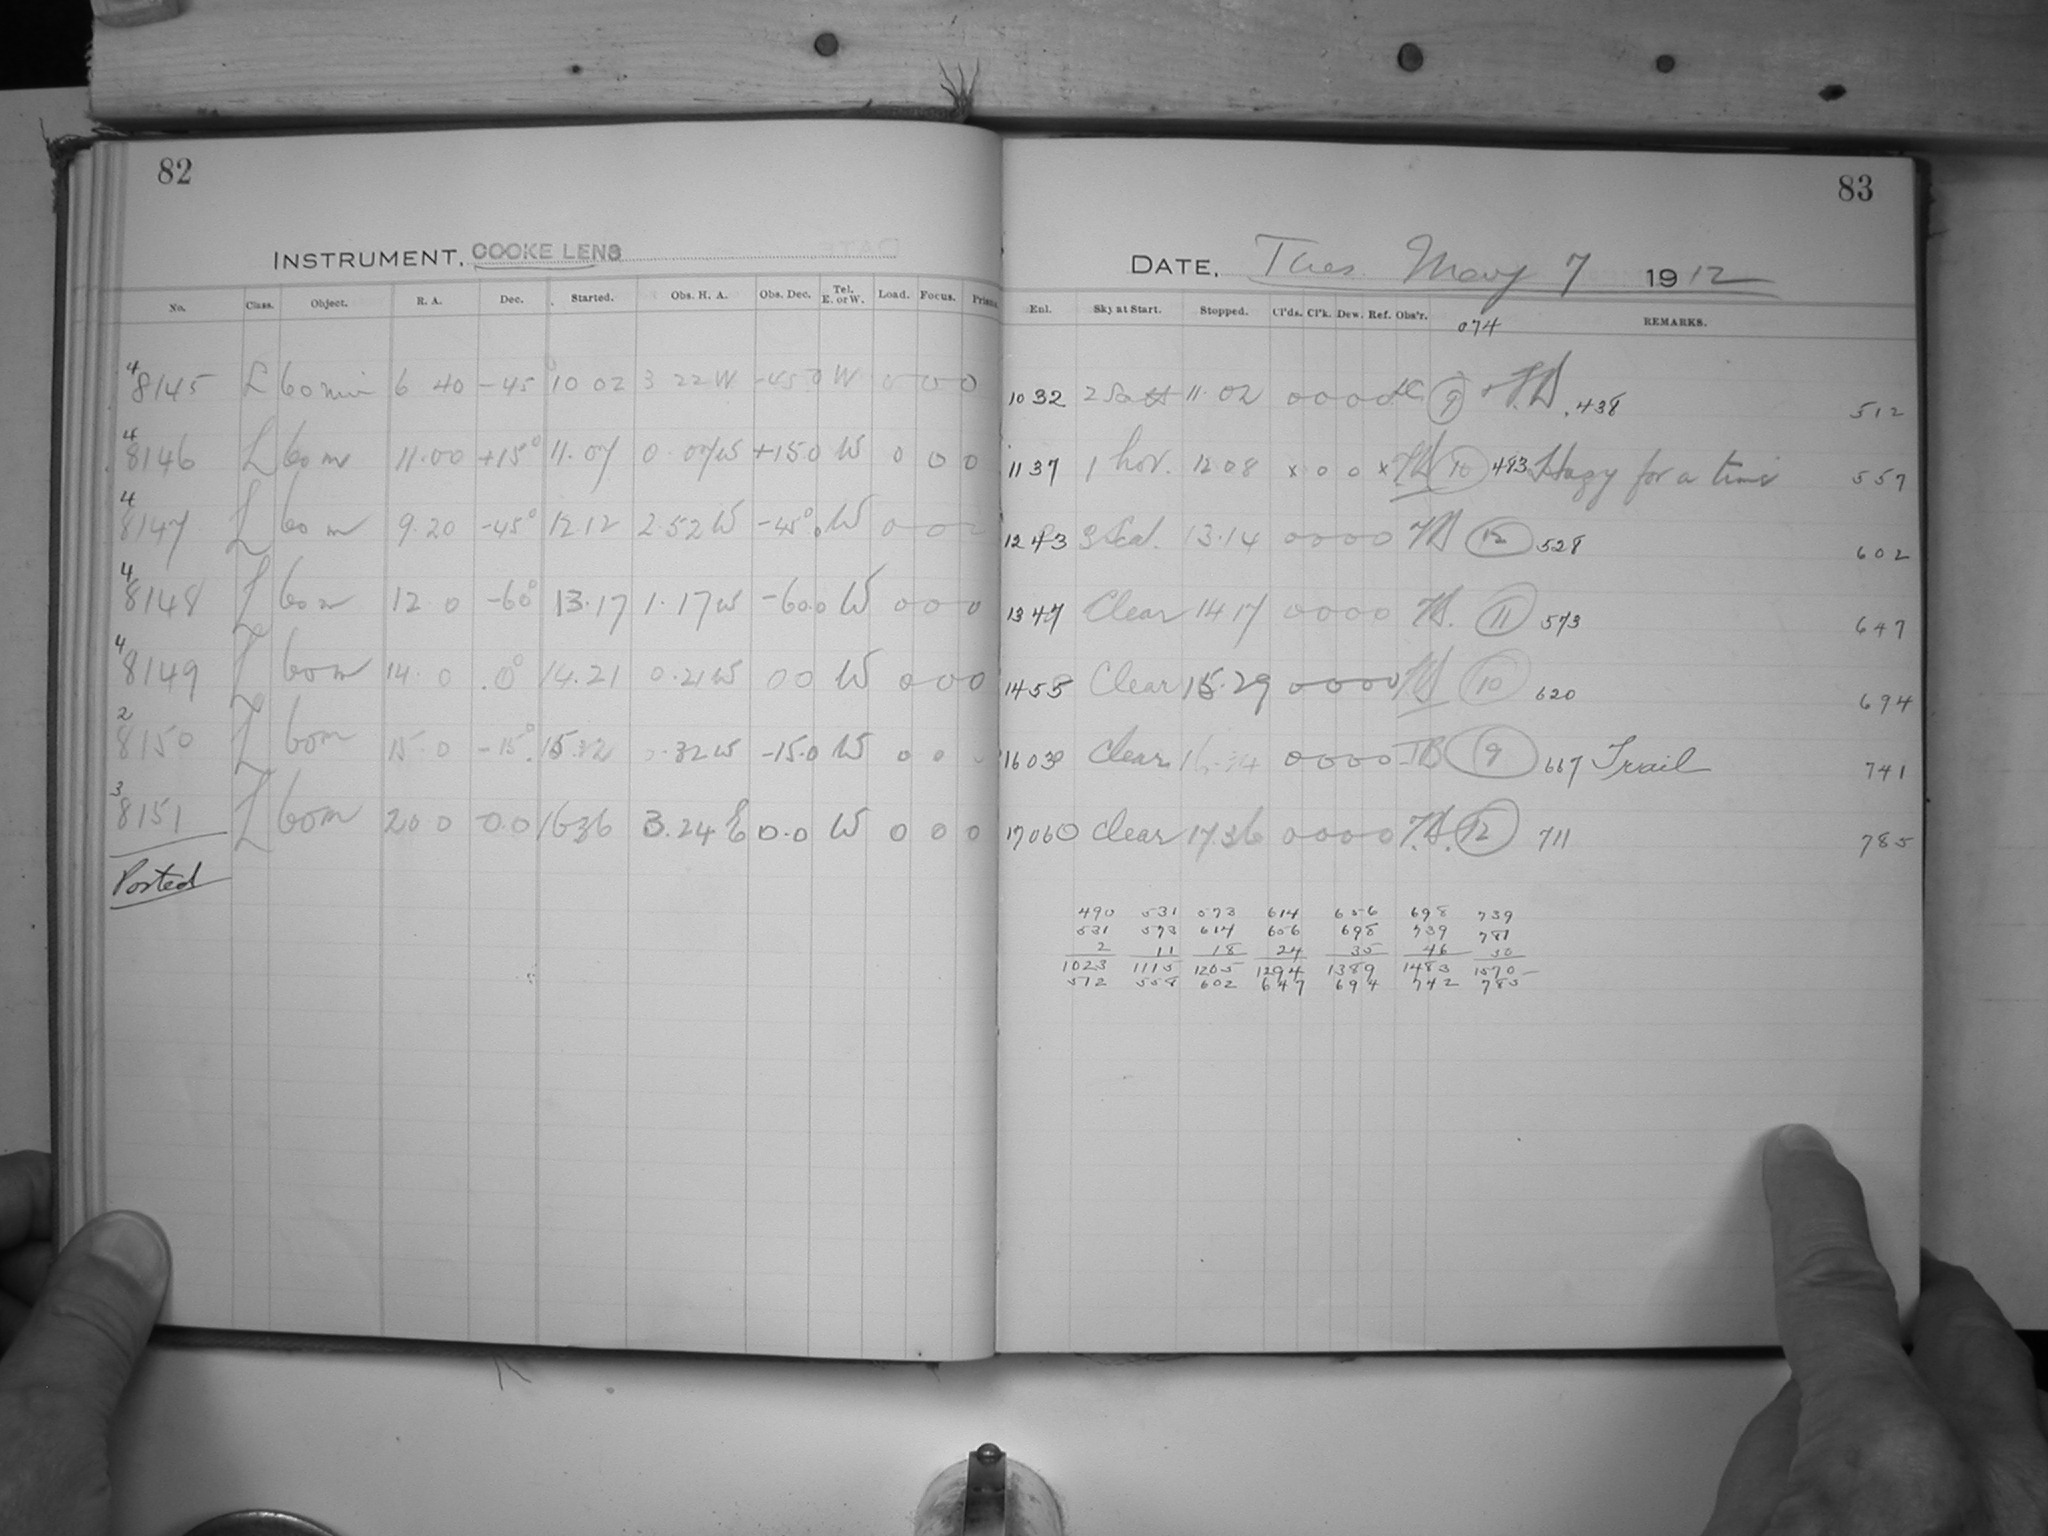 82
INSTRUMENT. COOKE LENS
No. Class. Object. R. A. Dec. Started. Obs. H. A. Obs. Dec. Tel. E. or W. Load. Focus. Prism.
4 8145 L 60 min 6 40 -45 10 02 3 22 W -45 0 W 0 0 0
4 8146 L 60 m 11.00 +15° 11.07 0 07 W +15.0 W 0 0 0
4 8147 L 60 m 9.20 -45° 12 12 2.52 W -45°.0 W 0 0 0
4 8148 L 60 m 12 0 -60° 13.17 1.17 W -60.0 W 0 0 0
4 8149 L 60 m 14. 0 .0° 14.21 0.21 W 0 0 W 0 0 0
2 8150 L 60 m 15.0 -15° 15.32 0.32 W -15.0 W 0 0
3 8151 L 60 m 20 0 0.0 16 36 3.24 E 0.0 W 0 0 0
Posted
83
DATE, Tues. May 7 1912
Enl. Sky at Start. Stopped. Cl'ds. Cl'k. Dew. Ref. Obs'r. 074 REMARKS.
10 32 11.02 0 0 0 9 .438 512
11 37 1 hor. 12.08 x 0 0 x 10 493 Hazy for a time 557
12 43 13.14 0 0 0 0 12 528 602
13 47 Clear 14 17 0 0 0 0 11 573 647
14 58 Clear 15.29 0 0 0 0 10 620 694
16 03 Clear 0 0 0 0 9 667 Trail 741
17 06 0 Clear 17 36 0 0 0 0 12 711 785
490 531 573 614 656 698 739
531 573 614 656 698 739 781
2 11 18 24 35 46 50
1023 1115 1205 1294 1389 1483 1570
512 558 602 647 694 742 785